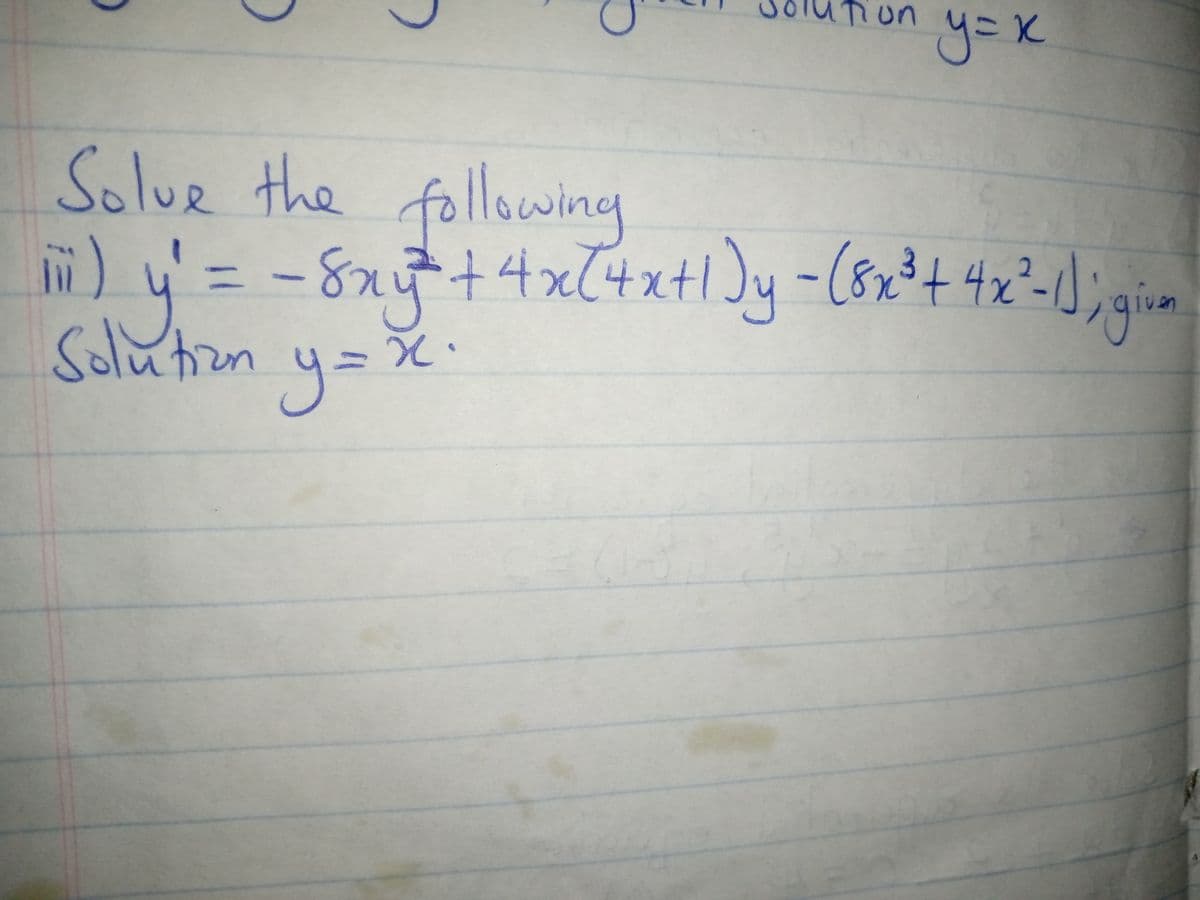 solution y = x
Solve the following
iii) y' = -8xy² + 4x(4x+1)y - (8x³ + 4x² - 1); given
Solution y = x.